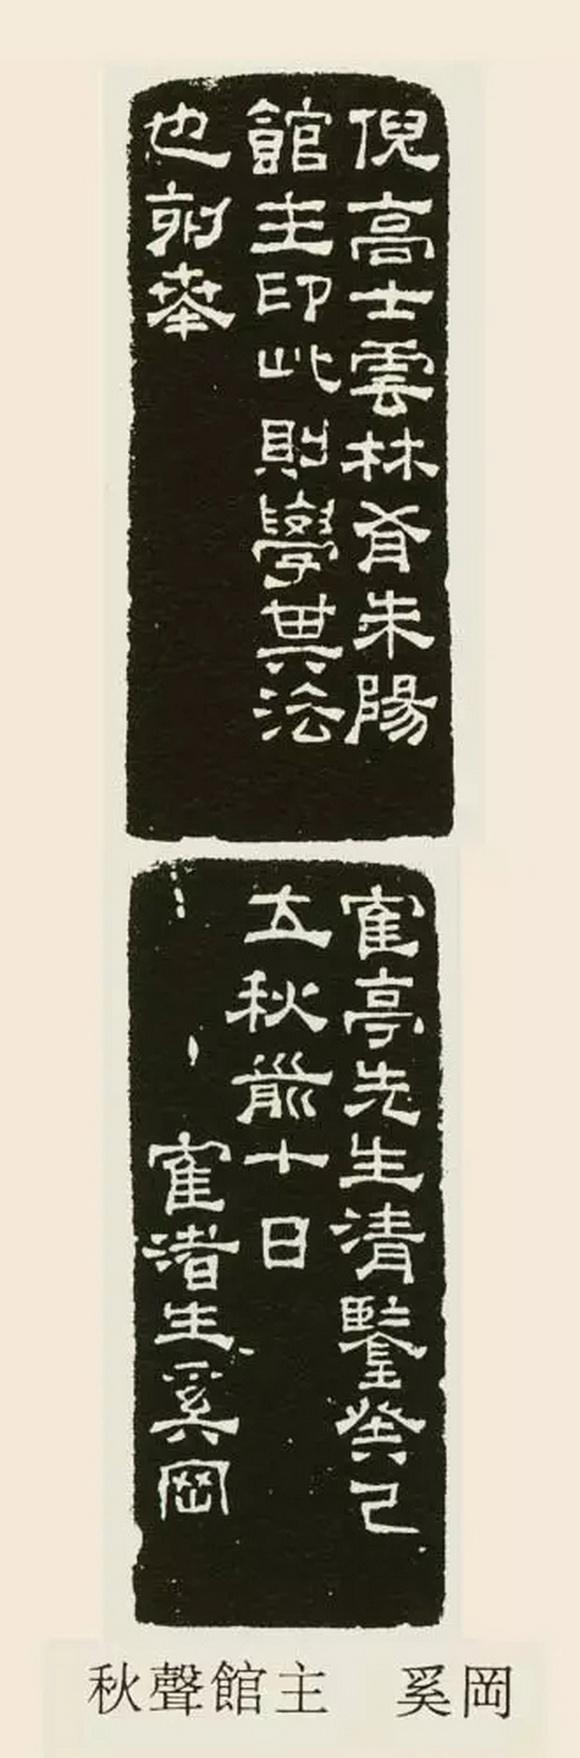 倪高士雲林有朱陽
館主印此則學其法
也刻奉
寉亭先生清鑒癸巳
立秋前十日
寉渚生奚岡
秋聲館主　奚岡